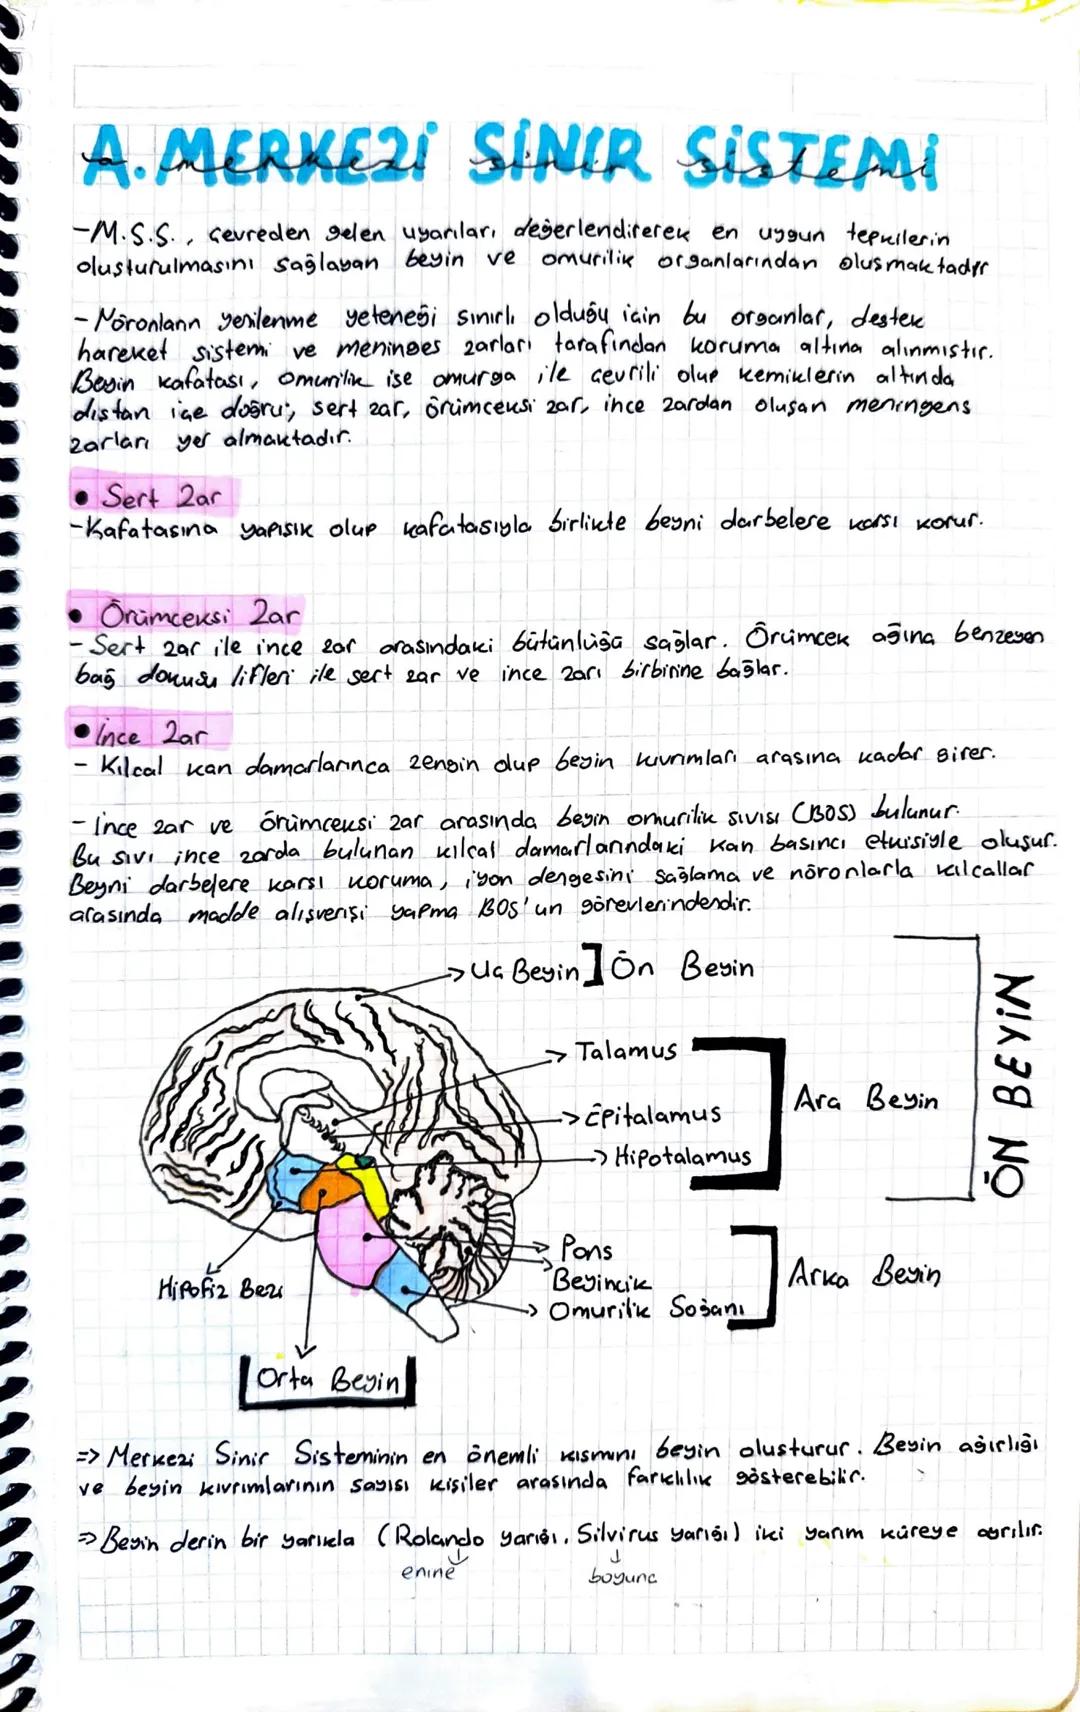 A. MERKEZİ SİNİR SİSTEMİ
-M.S.S., çevreden gelen uyarıları değerlendirerek en uygun tepkilerin
oluşturulmasını sağlayan beyin ve omurilik organlarından oluşmaktadır
-Nöronların yenilenme yeteneği sınırlı olduğu için bu organlar, destek
hareket sistemi ve meninges zarları tarafından koruma altına alınmıştır.
Beyin kafatası, omurilik ise omurga ile çevrili olup kemiklerin altında
dıştan içe doğru; sert zar, örümceksi zar, ince zardan oluşan meningens
zarları yer almaktadır.
• Sert Zar
-Kafatasına yapışık olup kafatasıyla birlikte beyni darbelere karşı korur.
• Örümceksi Zar
- Sert zar ile ince zar arasındaki bütünlüğü sağlar. Örümcek ağına benzeyen
bağ dokusu lifleri ile sert zar ve ince zarı birbirine bağlar.
• İnce Zar
- Kılcal kan damarlarınca zengin olup beyin kıvrımları arasına kadar girer.
- İnce zar ve örümceksi zar arasında beyin omurilik sıvısı (BOS) bulunur.
Bu sıvı ince zarda bulunan kılcal damarlarındaki kan basıncı etkisiyle oluşur.
Beyni darbelere karşı koruma, iyon dengesini sağlama ve nöronlarla kılcallar
arasında madde alışverişi yapma BOS'un görevlerindendir.
Uç Beyin] Ön Beyin
Talamus
Epitalamus
Hipotalamus
Ara Beyin
ÖN BEYİN
Pons
Beyincik
Omurilik Soğanı
Arka Beyin
Hipofiz Bezi
Orta Beyin
=> Merkezi Sinir Sisteminin en önemli kısmını beyin oluşturur. Beyin ağırlığı
ve beyin kıvrımlarının sayısı kişiler arasında farklılık gösterebilir.
=> Beyin derin bir yarıkla (Rolando yarığı, Silvirus yarığı) iki yarım küreye ayrılır.
enine
boyuna